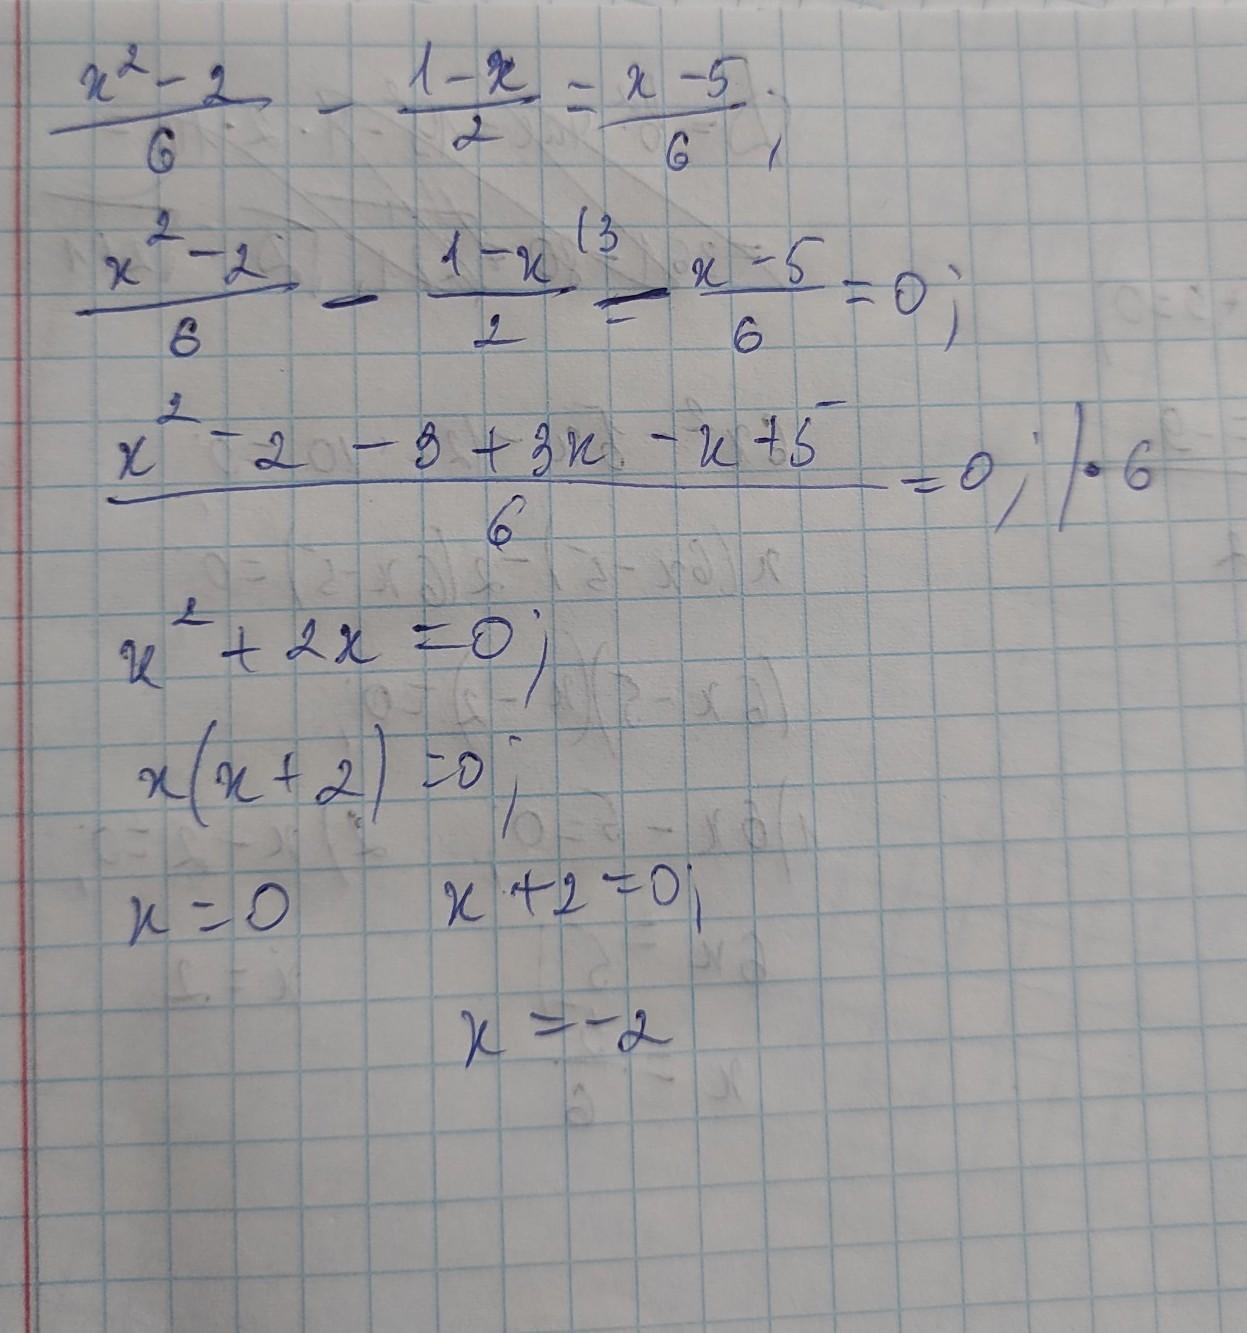 (x² - 2)/6 - (1 - x)/2 = (x - 5)/6;
(x² - 2)/6 - (1 - x)/2 (3 - (x - 5)/6 = 0;
(x² - 2 - 3 + 3x - x + 5)/6 = 0; / · 6
x² + 2x = 0;
x(x + 2) = 0;
x = 0 x + 2 = 0;
x = -2